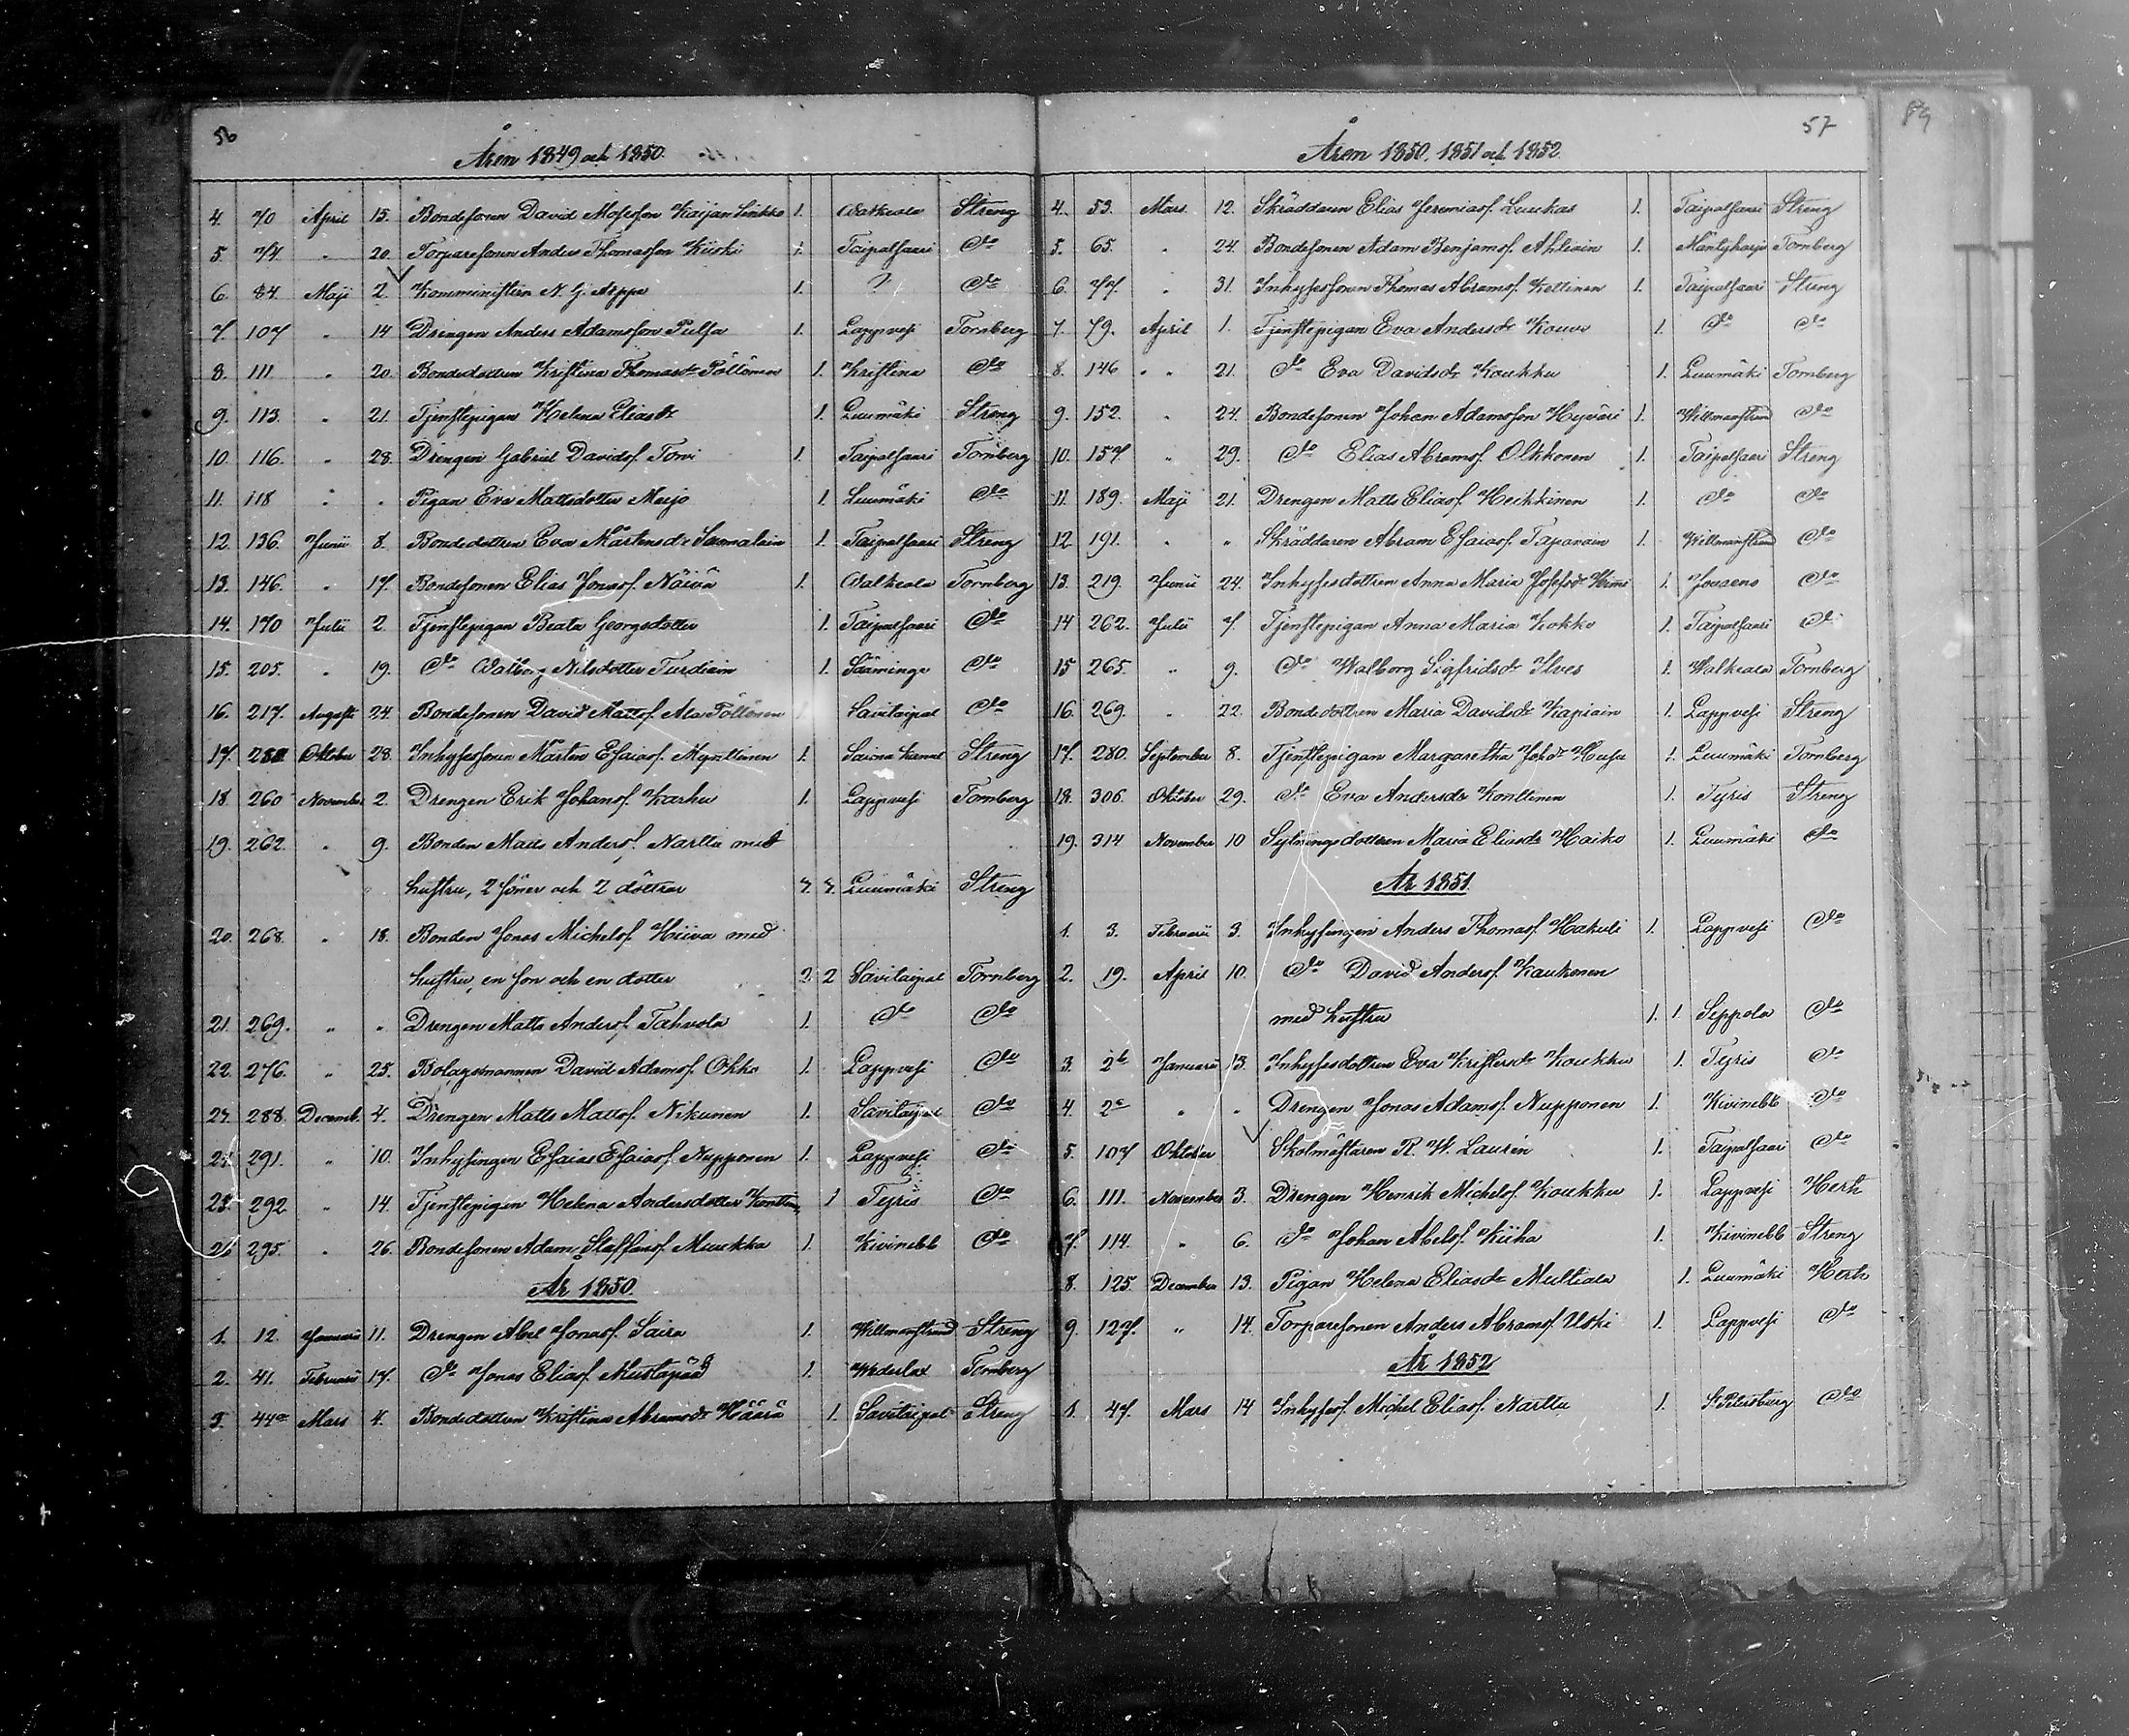 56
Åren 1849 och 1850.
4. 70 April 15. Bondesonen David Mosesson Kaijan Sinkko 1. Walkeala Streng
5. 74. " 20. Torparesonen Anders Thomasson Kiiski 1. Taipalsaari do
6. 84. Maji 2. Komministern N. G. Arppe 1. ? do
7. 107 " 14 Drengen Anders Adamsson Pulsa 1. Lappvesi Tornberg
8. 111. " 20. Bondedottren Kristina Thomasdr Pöllönen 1. Kristina do
9. 113. " 21. Tjenstepigan Helena Eliasdr 1. Luumäki Streng
10. 116. " 28. Drengen Gabriel Davidss. Torvi 1. Taipalsaari Tornberg
11. 118 " " Pigan Eva Mattsdotter Meijo 1. Luumäki do
12. 136. Junii 8. Bondedottren Eva Mårtensdr Samalain 1. Taipalsaari Streng
13. 146. " 17. Bondesonen Elias Jonass. Nöivä 1. Walkeala Tornberg
14. 170 Julii 2 Tjenstepigan Beata Georgsdotter 1. Taipalsaari do
15. 205. " 19. do Walborg Nilsdotter Turdiain 1. Sääminge do
16. 217. Augusti 24. Bondesonen David Mattss. Ala Pöllönen 1 Savitaipal do
17. Oktober 28. Inhysessonen Mårten Esaiass. Myntlinen 1. Streng
18. 260 November 2. Drengen Erik Johanss. Karhu 1. Lappvesi Tornberg
19. 262. " 9. Bonden Matts Anderss. Nartta med
hustru, 2 söner och 2 döttrar 3. 3. Luumäki Streng
20. 268. " 18. Bonden Jonas Michelss. Hiiva med
hustru, en son och en dotter 2. 2 Savitaipal Tornberg
21. 269. " " Drengen Matts Anderss. Tahvola 1. do do
22. 276. " 25. Bolagsmannen David Adamss. Okko 1. Lappvesi do
23. 288. Decemb. 4. Drengen Matts Mattss. Nikunen 1. Savitaipal do
24. 291. " 10. Inhysingen Esaias Esaiass. Nupponen 1. Lappvesi do
25. 292 " 14. Tjenstepigan Helena Andersdotter Konttin 1 Tyris do
26 295. " 26. Bondesonen Adam Staffanss. Muukka 1. Kivinebb do
År 1850.
1. 12. Januarii 11. Drengen Abel Jonass. Saira 1. Willmanstrand Streng
2. 41. Februarii 17. do Jonas Eliass. Mustapää 1. Wederlax Tornberg
3. 44a Mars 4. Bondedottren Kristina Abramsdr Häärä 1. Savitaipal Streng
57
Åren 1850, 1851 och 1852.
4. 53. Mars. 12. Skräddaren Elias Jeremiass. Luukas 1. Taipalsaari Streng
5. 65. " 24. Bondesonen Adam Benjamss. Ahliain 1. Mäntyharju Tornberg
6. 77. " 31. Inhysessonen Thomas Abramss. Kettinen 1. Taipalsaari Streng
7. 79. April 1. Tjenstepigan Eva Andersdr Kouvo 1. do do
8. 146 " " 21. do Eva Davidsdr Koukku 1. Luumäki Tornberg
9. 152. " 24. Bondesonen Johan Adamsson Hyväri 1. Willmanstrand do
10. 157 " 29. do Elias Abramss. Olkkonen 1. Taipalsaari Streng
11. 189. Maji 21. Drengen Matts Eliass. Heikkinen 1. do do
12 191. " " Skräddaren Abram Esaiass. Tapanain 1. Willmanstrand do
13. 219. Junii 24. Inhysesdottren Anna Maria Josefsdr 1. Jouseno do
14 262. Julii 7. Tjenstepigan Anna Maria Kokko 1. Taipalsaari do
15 265. " 9. do Walborg Sigfridsdr Ilves 1. Walkeala Tornberg
16. 269. " 22. Bondedottren Maria Davidsdr Kapiain 1. Lappvesi Streng
17. 280. September 8. Tjenstepigan Margaretha Johdr Husu 1. Luumäki Tornberg
18. 306. Oktober 29. do Eva Andersdr Konttinen 1. Tyris Streng
19. 314 November 10 Sytningsdottren Maria Eliasdr Haiko 1. Luumäki do
År 1851.
1. 3. Februarii 3. Inhysingen Anders Thomass. Hakuli 1. Lappvesi do
2. 19. April 10. do David Anderss. Kaukonen
med hustru 1. 1. Seppola do
3. 2b Januarii 13. Inhysesdottren Eva Kristersdr Koukku 1. Tyris do
4. 2c " " Drengen Jonas Adamss. Nupponen 1. Kivinebb do
5. 107 Oktober Skolmästaren R. W. Laurén 1. Taipalsaari do
6. 111. November 3. Drengen Henrik Michelss. Koukku 1. Lappvesi Herh
7. 114. " 6. do Johan Abelss. Kiiha 1. Kivinebb Streng
8. 125. December 13. Pigan Helena Eliasdr Multiala 1. Luumäki Herh
9. 127. " 14. Torparesonen Anders Abramss. Uski 1. Lappvesi do
År 1852
1. 47. Mars 14 Inhysess. Michel Eliass. Narttu 1. St Petersburg do